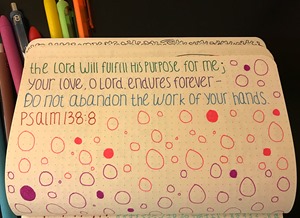 the Lord will fulfill His purpose for me;
Your love, O Lord, endures forever –
Do not abandon the work of your hands.
Psalm 138:8